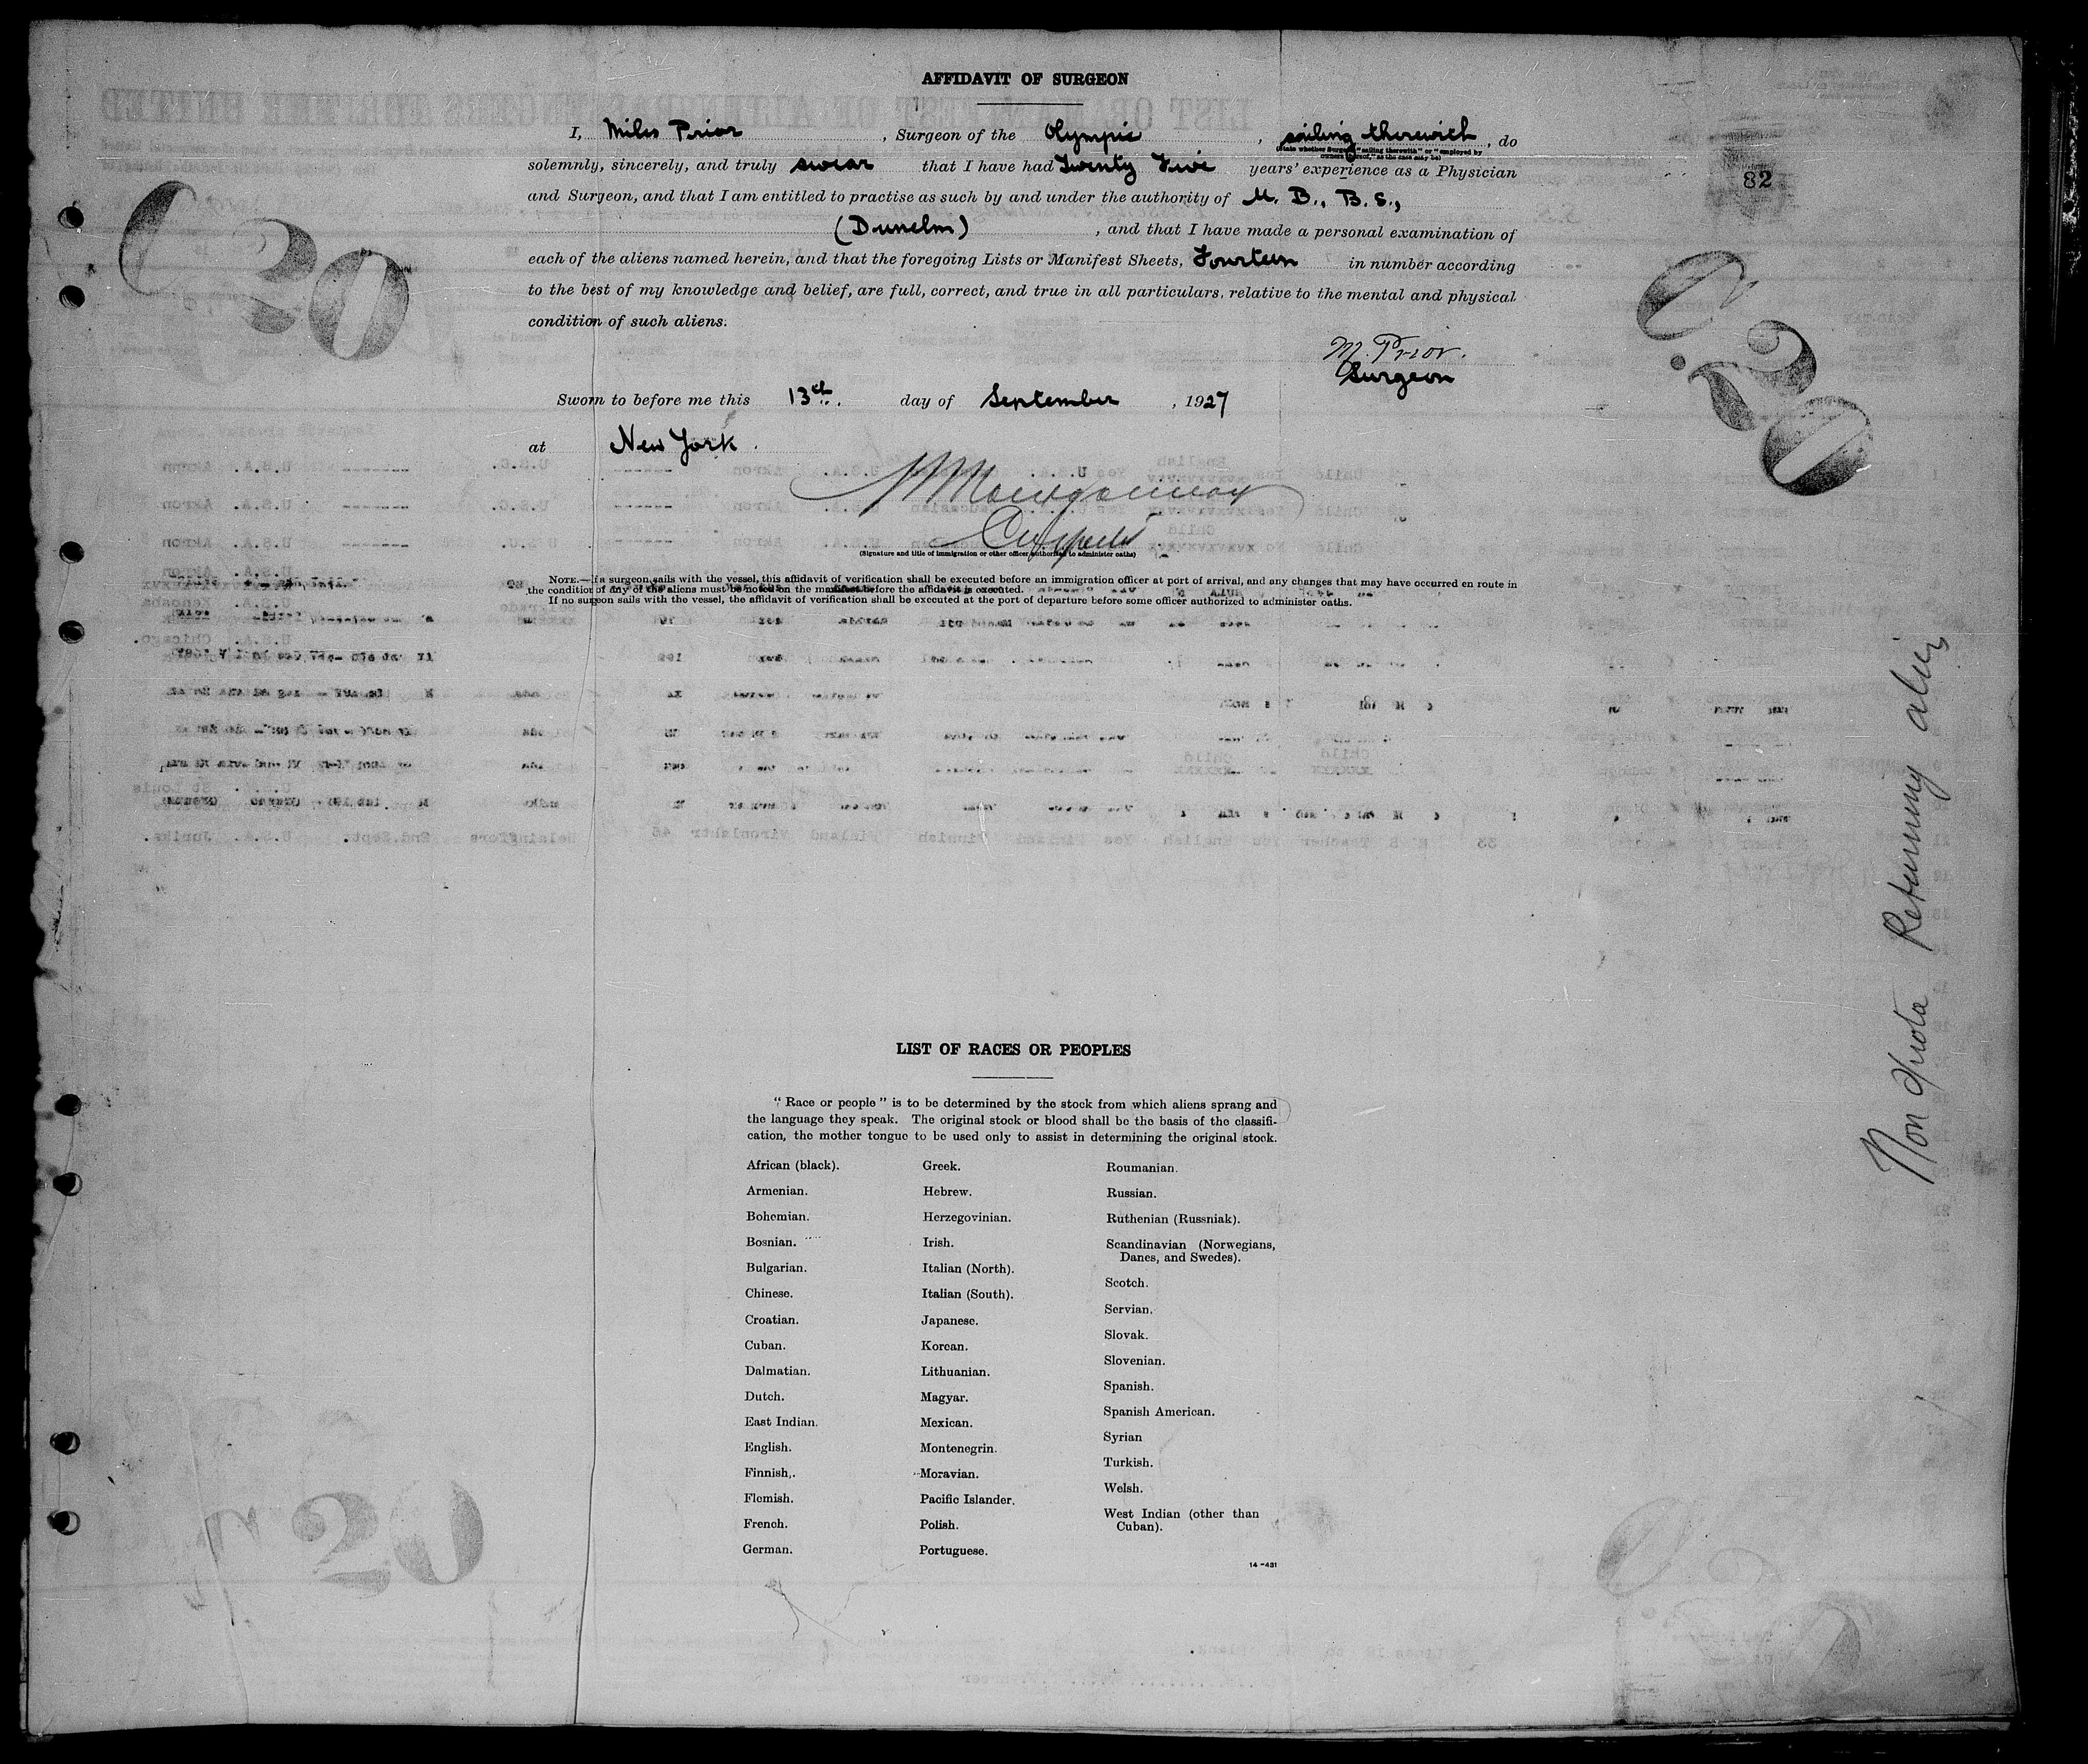 AFFIDAVIT OF SURGEON
I, Miles Prior, Surgeon of the Olympic, sailing therewith, do
(State whether Surgeon "sailing therewith" or "employed by
owners thereof," as the case may be)
solemnly, sincerely, and truly swear that I have had Twenty Five years' experience as a Physician
and Surgeon, and that I am entitled to practise as such by and under the authority of M. B., B. S.,
(Dunelm), and that I have made a personal examination of
each of the aliens named herein, and that the foregoing Lists or Manifest Sheets, Fourteen in number according
to the best of my knowledge and belief, are full, correct, and true in all particulars, relative to the mental and physical
condition of such aliens.
M. Prior.
Surgeon
Sworn to before me this 13th. day of September, 1927
at New York.
(Signature and title of immigration or other officer authorized to administer oaths)
NOTE.—If a surgeon sails with the vessel, this affidavit of verification shall be executed before an immigration officer at port of arrival, and any changes that may have occurred en route in
the condition of any of the aliens must be noted on the manifest before the affidavit is executed.
If no surgeon sails with the vessel, the affidavit of verification shall be executed at the port of departure before some officer authorized to administer oaths.
82
20
20
20
Non Quota Returning alien
LIST OF RACES OR PEOPLES
"Race or people" is to be determined by the stock from which aliens sprang and
the language they speak. The original stock or blood shall be the basis of the classifi-
cation, the mother tongue to be used only to assist in determining the original stock.
African (black).
Armenian.
Bohemian.
Bosnian.
Bulgarian.
Chinese.
Croatian.
Cuban.
Dalmatian.
Dutch.
East Indian.
English.
Finnish.
Flemish.
French.
German.
Greek.
Hebrew.
Herzegovinian.
Irish.
Italian (North).
Italian (South).
Japanese.
Korean.
Lithuanian.
Magyar.
Mexican.
Montenegrin.
Moravian.
Pacific Islander.
Polish.
Portuguese.
Roumanian.
Russian.
Ruthenian (Russniak).
Scandinavian (Norwegians,
Danes, and Swedes).
Scotch.
Servian.
Slovak.
Slovenian.
Spanish.
Spanish American.
Syrian
Turkish.
Welsh.
West Indian (other than
Cuban).
14-431